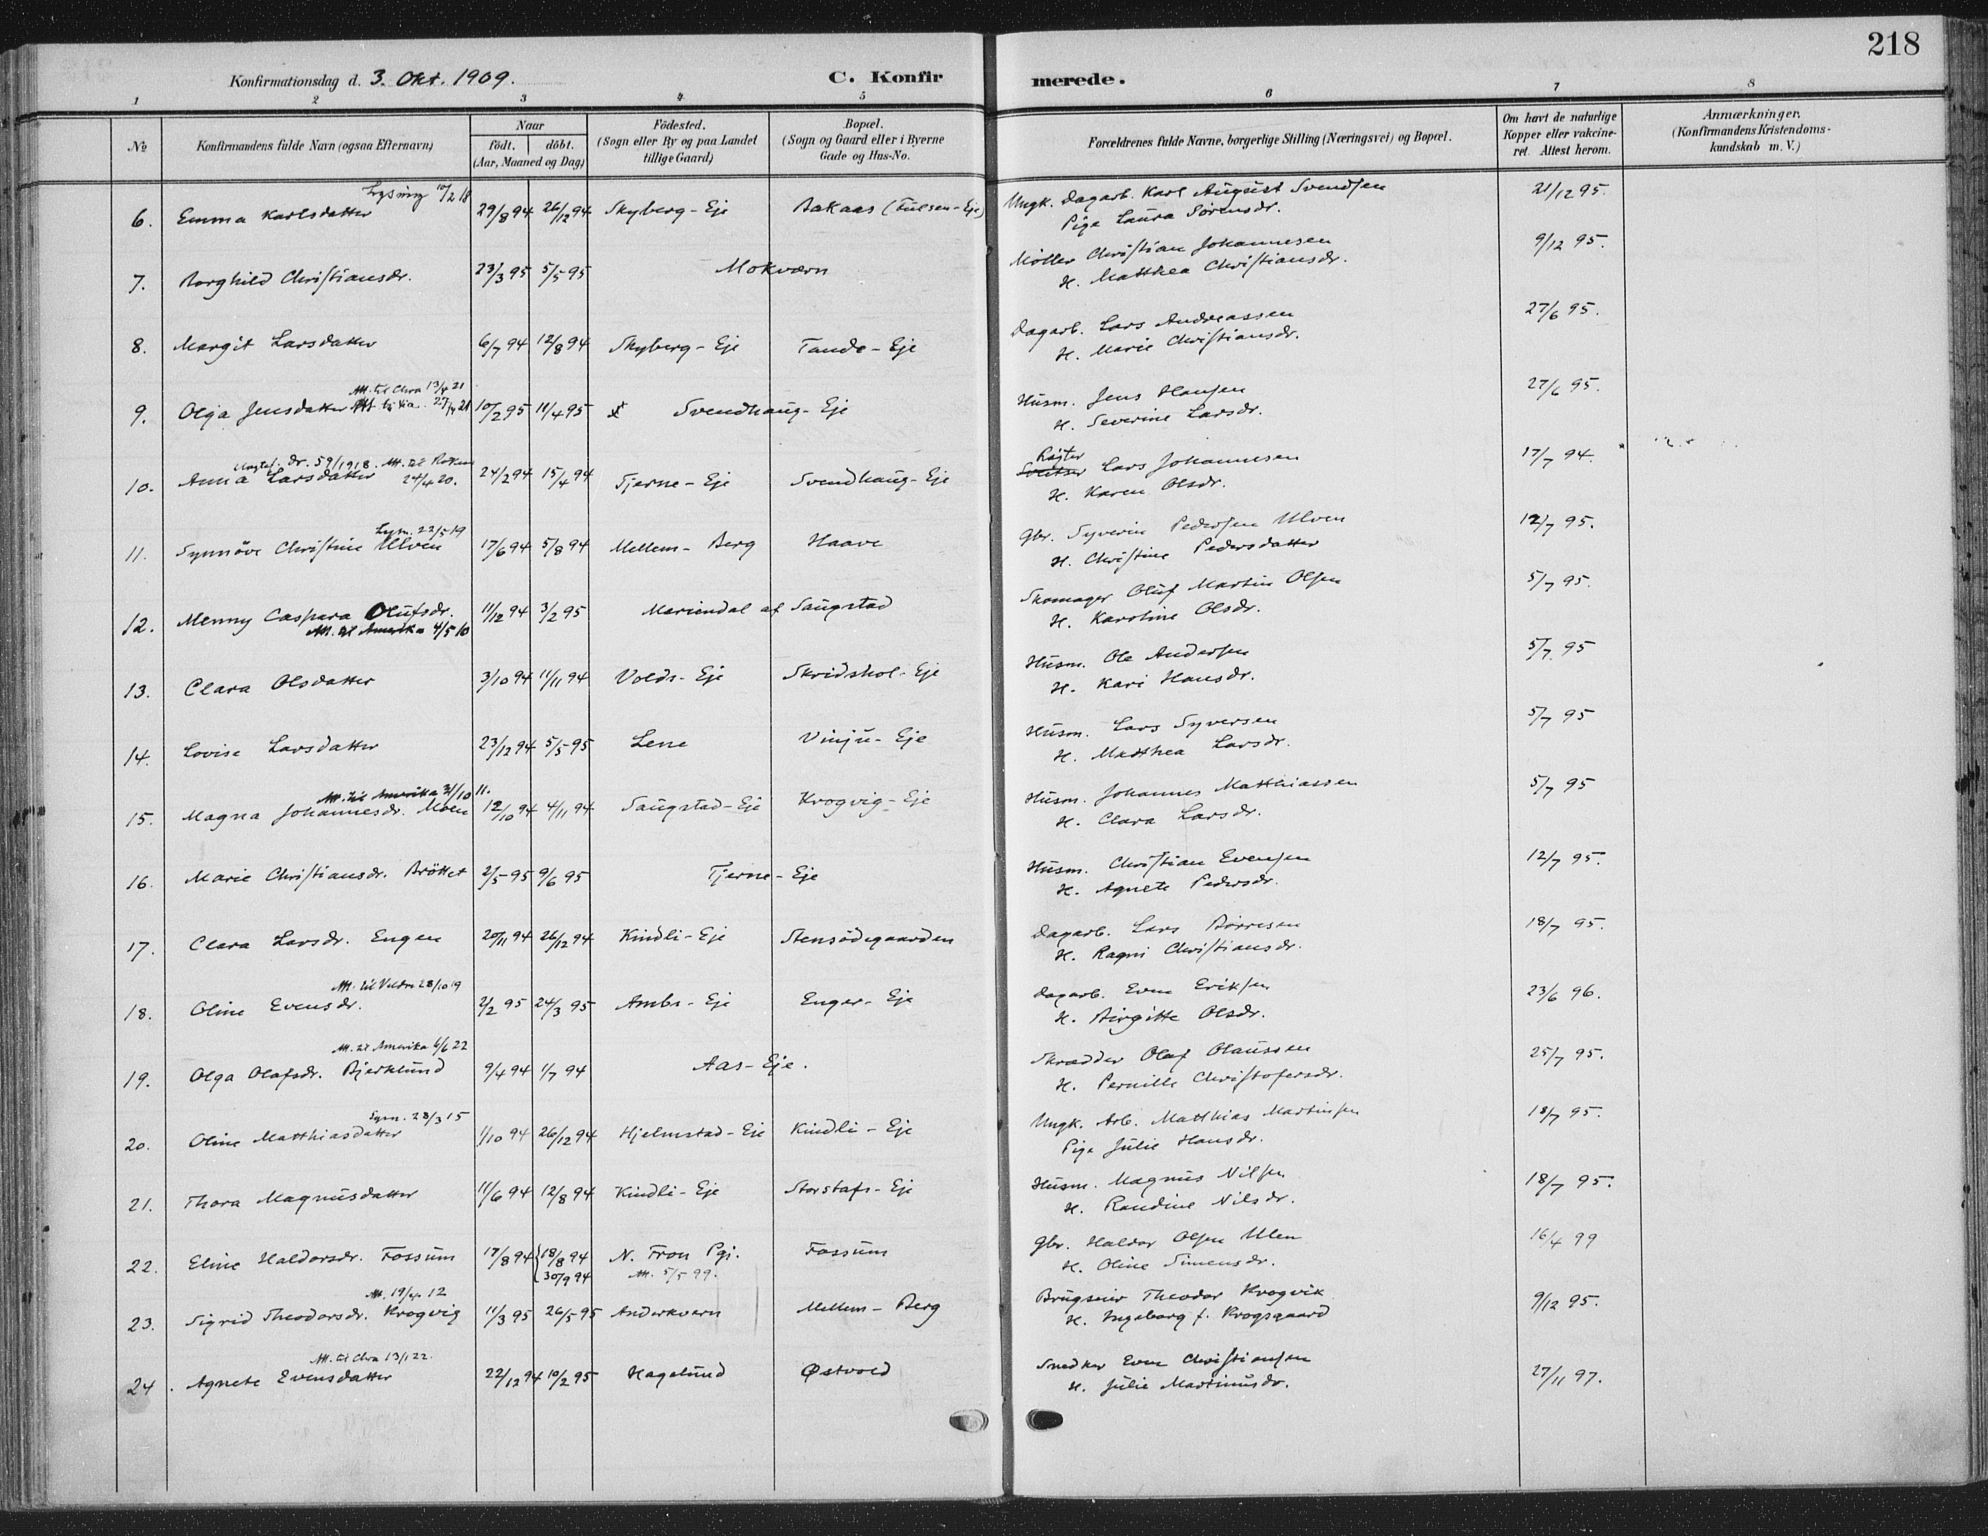 218
Konfirmationsdag d. 3. Okt. 1909. C. Konfirmerede.
1 2 3 4 5 6 7 8
No Konfirmandens fulde Navn (ogsaa Efternavn) Naar födt. döbt. (Aar, Maaned og Dag) Födested. (Sogn eller By og paa Landet tillige Gaard) Bopæl. (Sogn og Gaard eller i Byerne Gade og Hus-No. Forældrenes fulde Navne, borgerlige Stilling (Næringsvei) og Bopæl. Om havt de naturlige Kopper eller vakcineret. Attest herom. Anmærkninger. (Konfirmandens Kristendomskundskab m. V.)
Lysning 10/2 18
6. Emma Karlsdatter 29/8 94 26/12 94 Skyberg-Eje Bakaas (Fulsen-Eje) Ungk. Dagarb. Karl August Svendsen 21/12 95.
Pige Laura Sørensdr.
7. Borghild Christiansdr. 23/3 95 5/5 95 Mokværn Möller Christian Johannesen 9/12 95.
H. Matthea Christiansdr.
8. Margit Larsdatter 6/7 94 12/8 94 Skyberg-Eje Tande-Eje Dagarb. Lars Andreassen 27/6 95.
H. Marie Christiansdr.
Att. til Chra 13/4 21
9. Olga Jensdatter 27/4 21 10/2 95 11/4 95 Svendhaug-Eje Husm. Jens Hansen 27/6 95.
H. Severine Larsdr.
dr. 59/1918. Att. til
10. Anna Larsdatter 24/4 20. 24/2 94 15/4 94 Tjerne-Eje Svendhaug-Eje Røgter Lars Johannesen 17/7 94.
H. Karen Olsdr.
Lysn. 22/5 19
11. Synnöve Christine Ulven 17/6 94 5/8 94 Mellem-Berg Haave Gbr. Syverin Pedersen Ulven 12/7 95.
H. Christine Pedersdatter
12. Menny Caspara Olufsdr. 11/12 94 3/2 95 Mariendal af Saugstad Skomager Oluf Martin Olsen 5/7 95.
Att. til Amerika 4/5 10 H. Karoline Olsdr.
13. Clara Olsdatter 3/10 94 11/11 94 Volds-Eje Skridshol-Eje Husm. Ole Andersen 5/7 95
H. Kari Hansdr.
14. Lovise Larsdatter 23/12 94 5/5 95 Lene Vinju-Eje Husm. Lars Syversen 5/7 95
H. Matthea Larsdr.
Att. til Amerika 31/10 11.
15. Magna Johannesdr. Moen 12/10 94 4/11 94 Saugstad-Eje Krogvig-Eje Husm. Johannes Matthiassen 5/7 95
H. Clara Larsdr.
16. Marie Christiansdr. Bröttet 2/5 95 9/6 95 Tjerne-Eje Husm. Christian Evensen 12/7 95.
H. Agnete Pedersdr.
17. Clara Larsdr. Engen 20/11 94 26/12 94 Kindli-Eje Stensödegaarden Dagarb. Lars Börresen 18/7 95.
H. Ragni Christiansdr.
Att. til Veldre 28/10 19
18. Oline Evensdr. 2/2 95 24/3 95 Ambs-Eje Enger-Eje Dagarb. Even Eriksen 23/6 96.
H. Birgitte Olsdr.
Att. til Amerika 6/6 22
19. Olga Olafsdr. Bjerklund 9/4 94 1/7 94 Aas-Eje. Skrædder Olaf Olaussen 25/7 95.
H. Pernille Christofersdr.
Lysn. 28/3 15
20. Oline Matthiasdatter 1/10 94 26/12 94 Hjelmstad-Eje Kindli-Eje Ungk. Arb. Matthias Martinsen 18/7 95.
Pige Julie Hansdr.
21. Thora Magnusdatter 11/6 94 12/8 94 Kindli-Eje Storstafs-Eje Husm. Magnus Nilsen 18/7 95.
H. Randine Nilsdr.
22. Eline Haldorsdr. Fossum 17/8 94 18/8 94 N. Fron Pgj. Fossum Gbr. Haldor Olsen Ulen 16/4 99
30/9 94 Att. 5/5 99. H. Oline Simensdr.
Att. 19/4 12
23. Sigrid Theodorsdr. Krogvig 11/3 95 26/5 95 Anderkvern Mellem-Berg Brugseier Theodor Krogvik 9/12 95.
H. Ingeborg f. Krogsgaard
Att. til Chra 13/1 22.
24. Agnete Evensdatter 22/12 94 10/2 95 Hagelund Østvold Snedker Even Christiansen 27/11 97.
H. Julie Martinusdr.